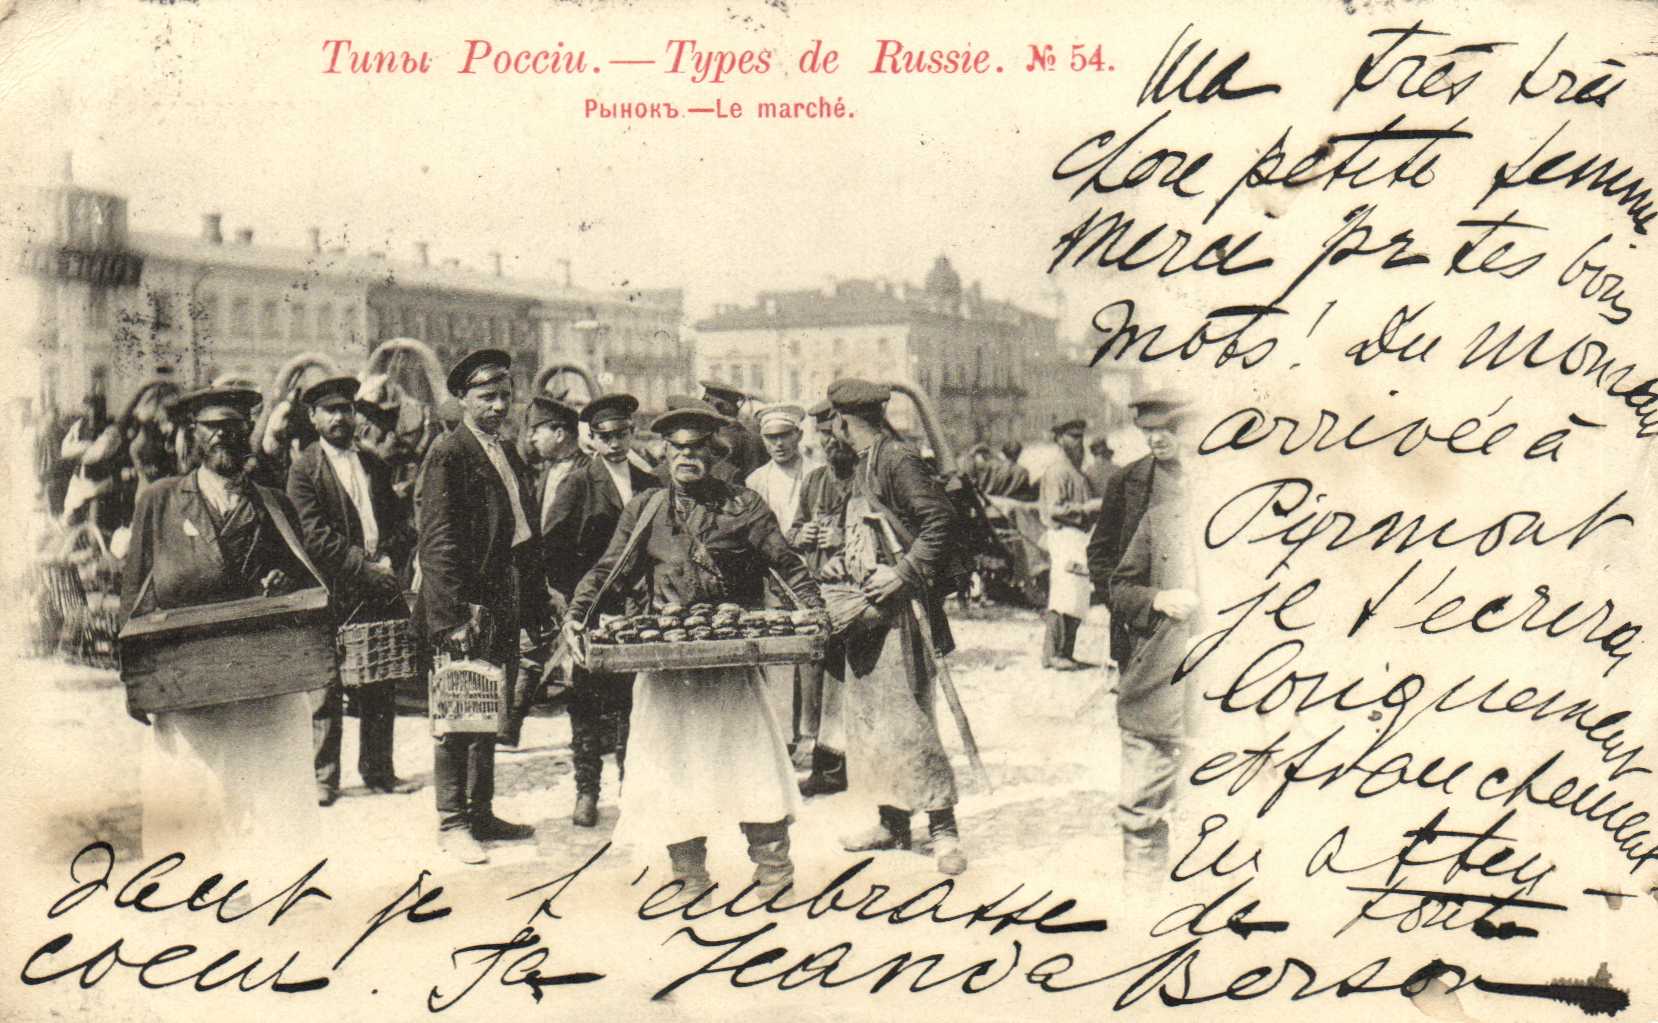 Типы Россіи.—Types de Russie. № 54.
Рынокъ.—Le marché.
Ma très très
chère petite femme
Merci pr tes bons
mots! Du moment
arrivée à
Pyrmont
je t'ecrirai
longuement
et franchement
En atten-
dant je t'embrasse de tout
coeur. Ta Jeanda Berson